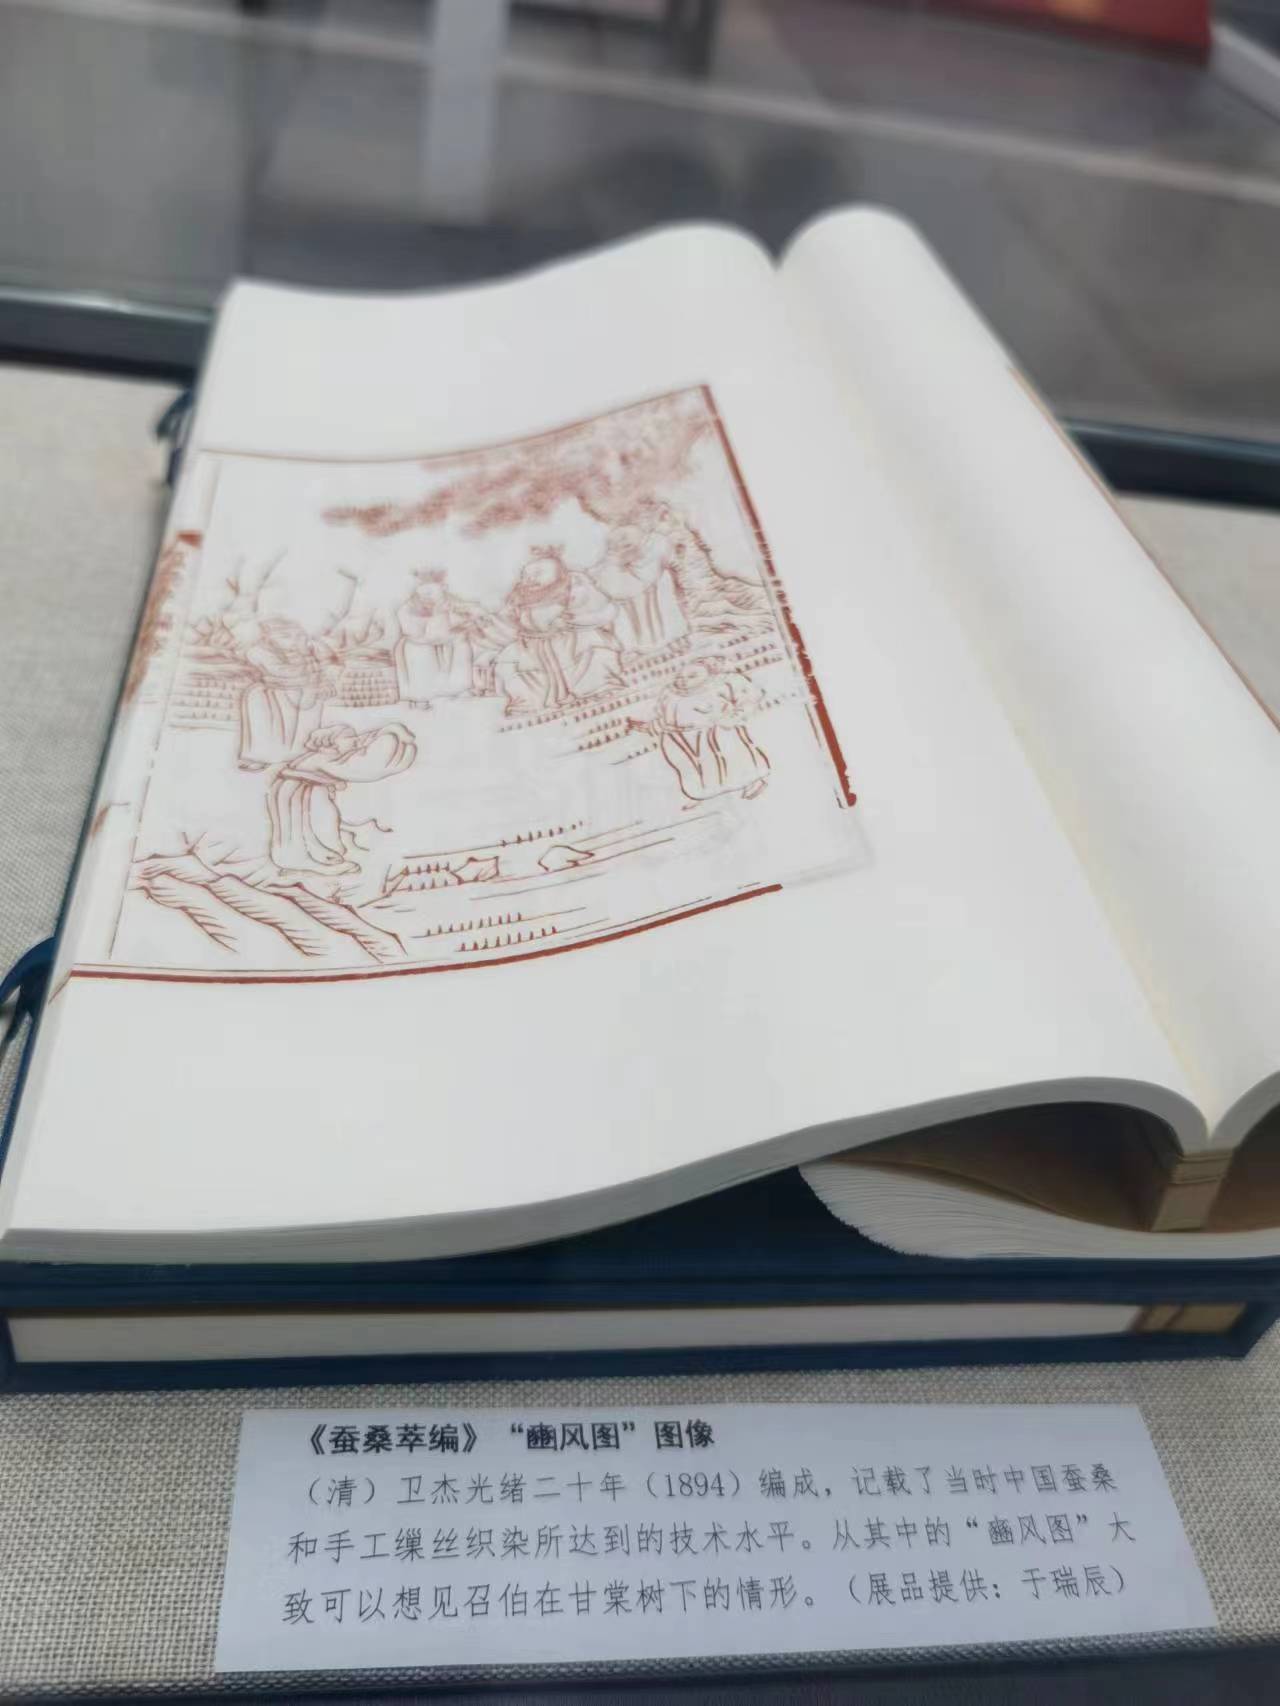 《蚕桑萃编》“豳风图”图像
（清）卫杰光绪二十年（1894）编成，记载了当时中国蚕桑
和手工缫丝织染所达到的技术水平。从其中的“豳风图”大
致可以想见召伯在甘棠树下的情形。（展品提供：于瑞辰）